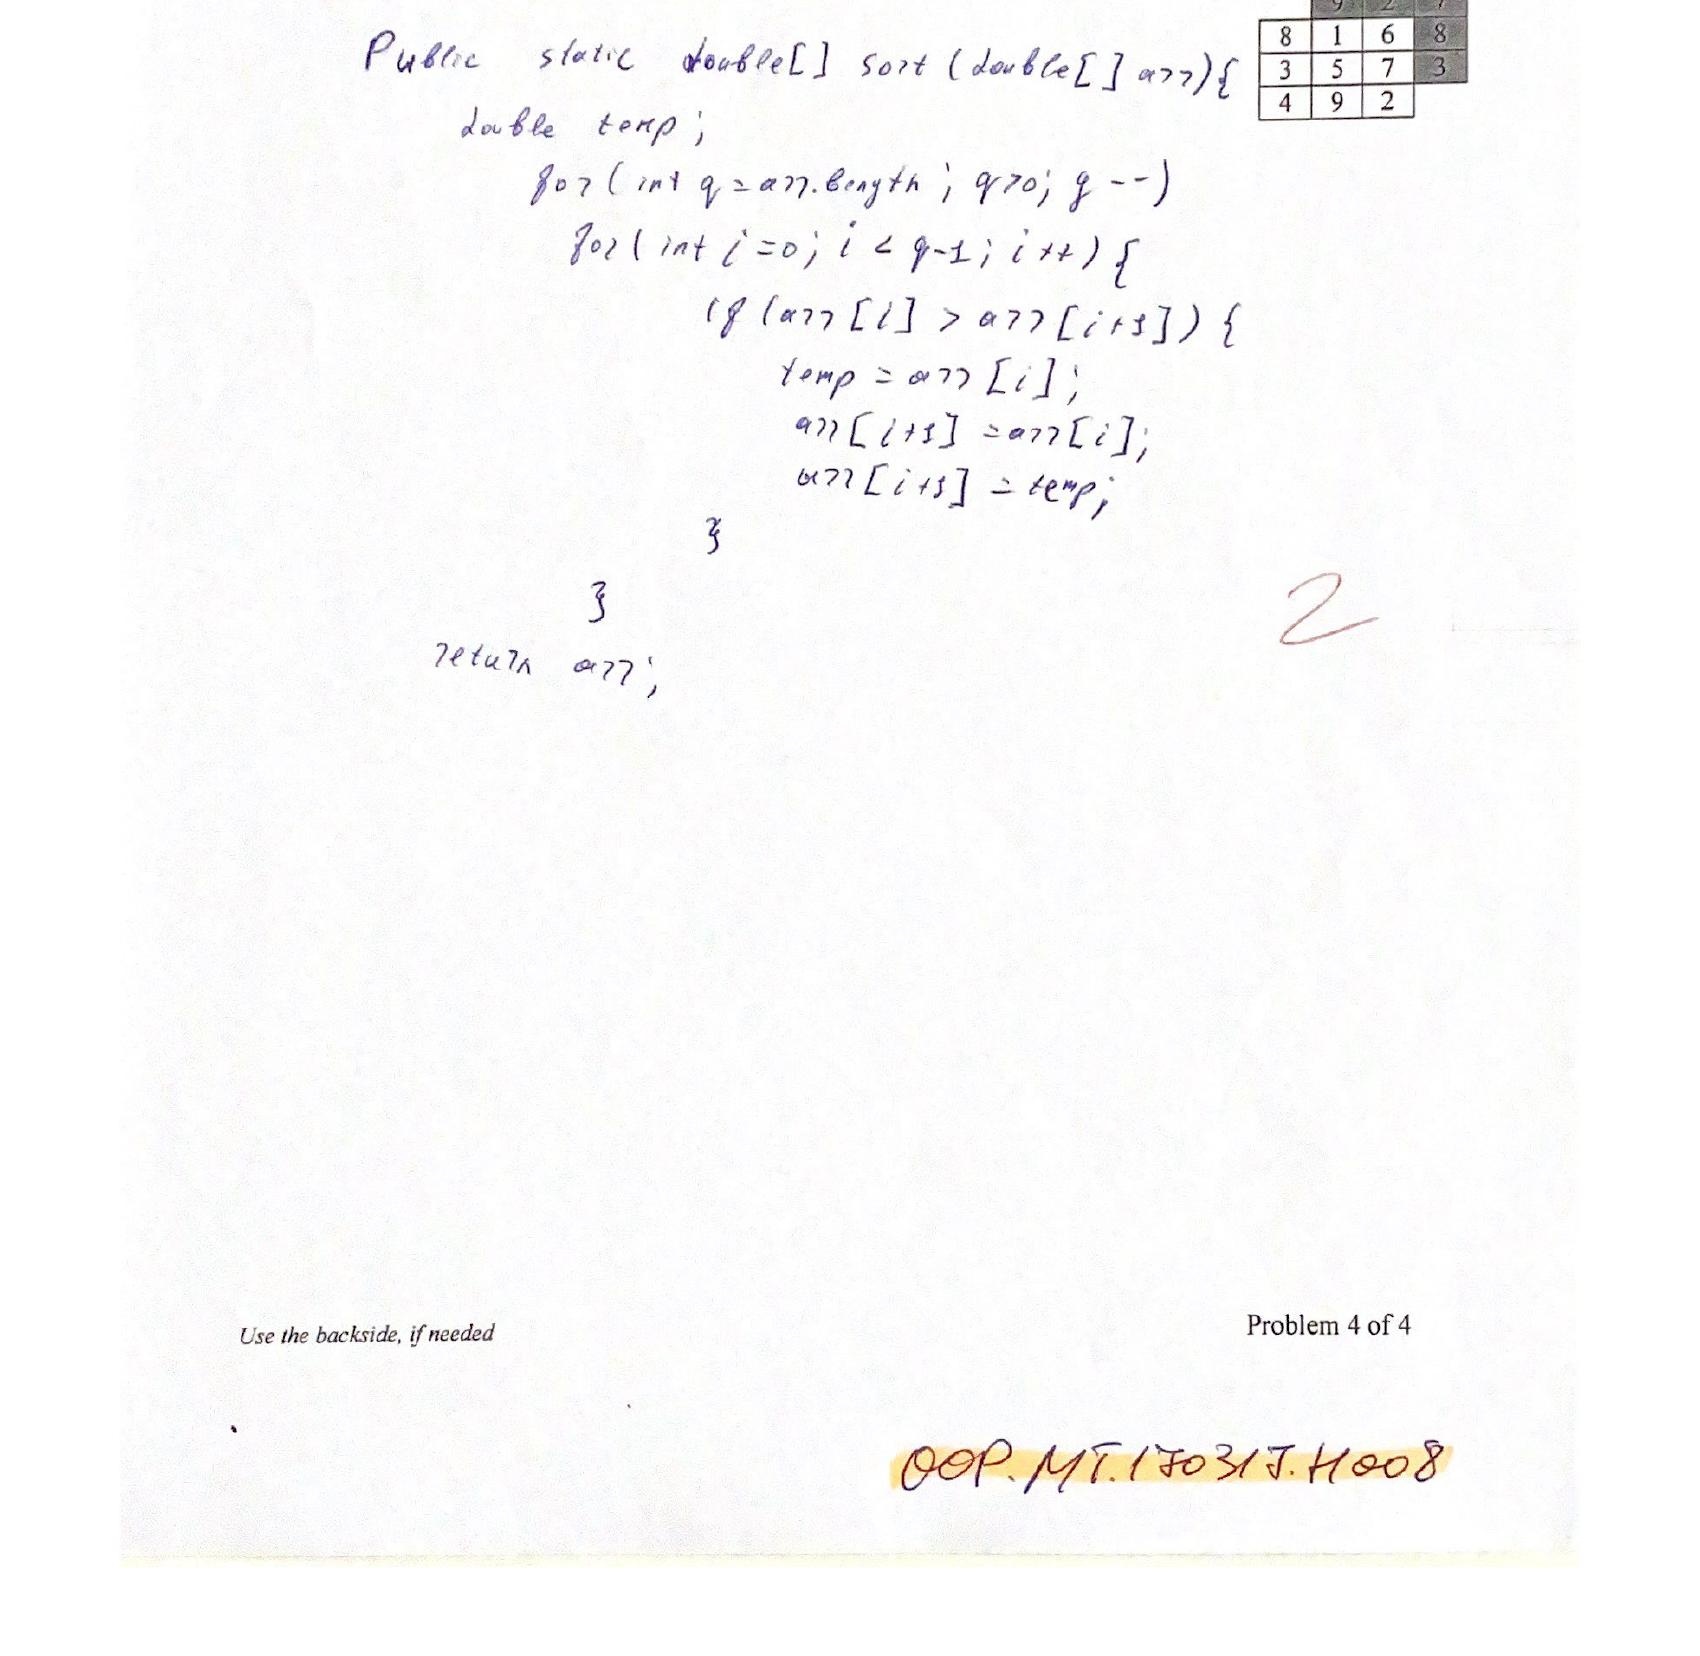 9 2 7
8 1 6 8
3 5 7 3
4 9 2
Public static double[] sort (double[] arr){
double temp;
for(int q=arr.length; q>0; q--)
for(int i=0; i<q-1; i++){
if(arr[i] > arr[i+1]){
temp = arr[i];
arr[i+1] = arr[i];
arr[i+1] = temp;
}
}
return arr;
2
Use the backside, if needed
Problem 4 of 4
OOP.MT.170317.H008